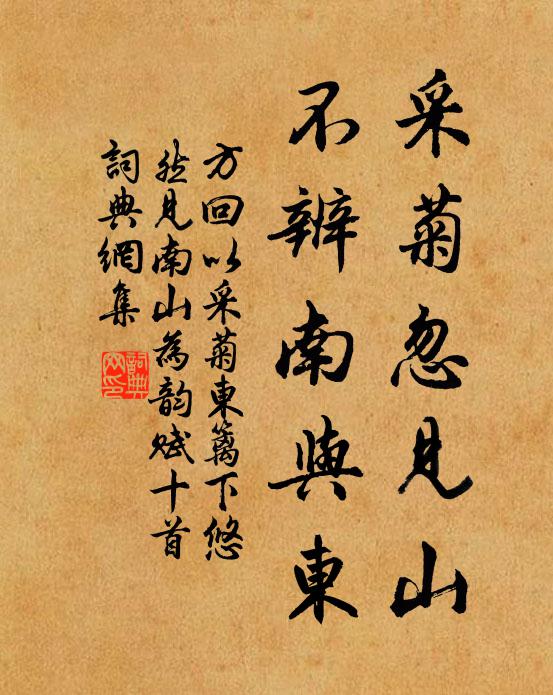 采菊忽見山
不辨南與東
方回以采菊東篱下悠
然見南山為韵赋十首
詞典網集
詞典網印